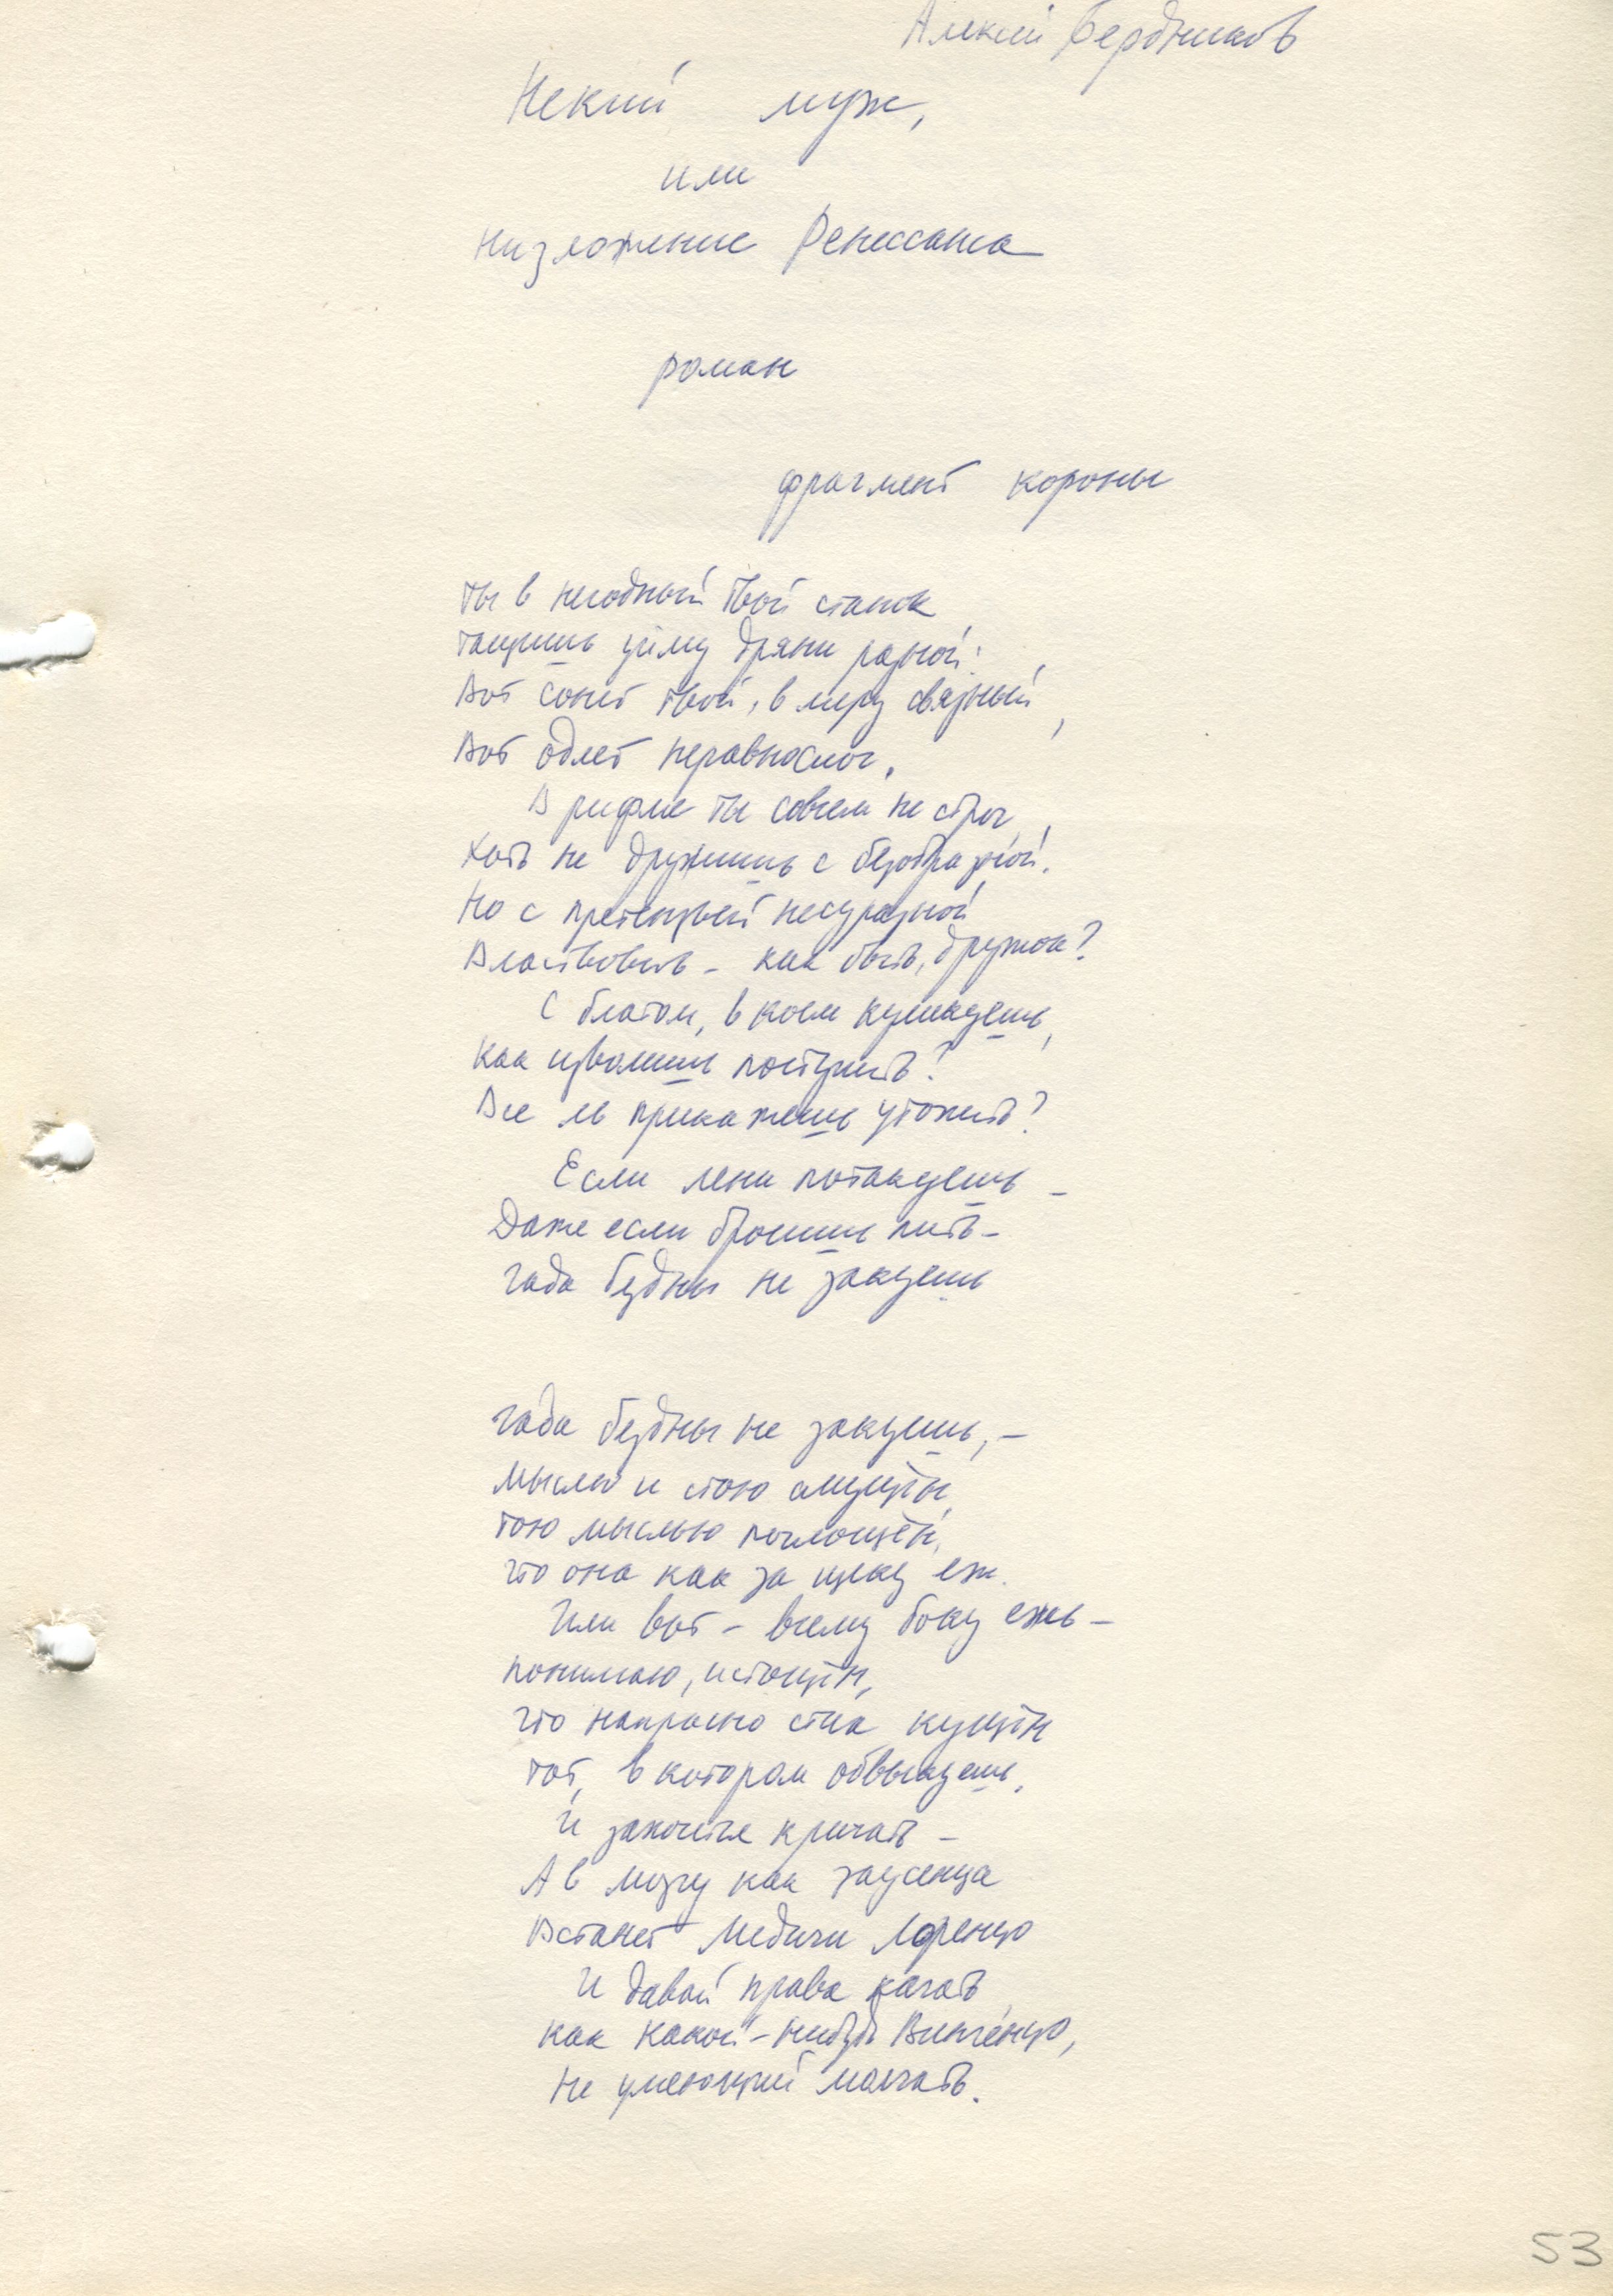 Алексей Бердников
Некий муж,
или
Низложение Ренессанса
роман
фрагмент короны
Ты в негодный твой станок
тащишь уйму дряни разной:
Вот сонет твой, в меру связный,
Вот одет неравносмог.
В рифме ты совсем не строг,
Хоть не дружишь с безобразной.
Но с претензьей несуразной
Властвовать – как быть, дружок?
С благом, в коем кумекуешь,
Как изволишь поступить?
Все ль прикажешь утопить?
Если лени потакуешь –
Даже если бросишь пить –
гада бездны не закуешь
гада бездны не закуешь, –
мыслю и стою смущён,
тою мыслью поглощён,
что она как за щеку еж.
Или вот – всему боку ежь –
понимаю, истощён,
что напрасно стих кущён
тот, в котором обвыкуешь,
И захочется кричать –
А в мозгу как заусенца
Встанет Медичи Лоренцо
И давай права качать,
как какой-нибудь Винченцо,
Не умеющий молчать.
53